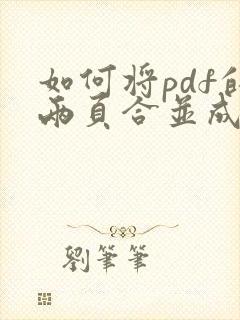 如何将pdf的
兩頁合並成
劉筆筆